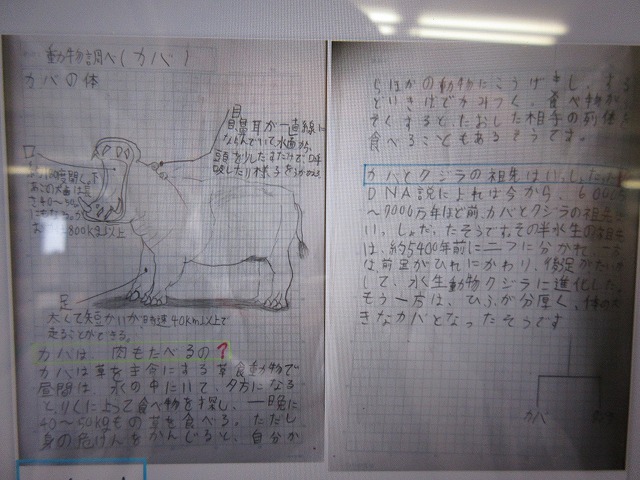 動物調べ(カバ)
カバの体
目
鼻耳が一直線に
ならんでいて水面から
頭を少しだすだけで、呼
吸したり様子を
口
度開く。下
あごの犬歯は長
さ40〜50
800kg以上
足
太くて短かいが時速40km以上で
走ることができる。
カバは、肉もたべるの?
カバは草を主食にする草食動物で
昼間は、水の中にいて、夕方になる
とりくに上って食べ物を探し、一晩に
40〜50kgもの草を食べる。ただし
身の危けんをかんじると、自分か
らほかの動物にこうげきし、する
どいきばでかみつく。食べ物が
なくすると、たおした相手の死体を
食べることもあるそうです。
カバとクジラの祖先はいっしょだった
DNA説によれば今から、6000万
〜7000万年ほど前、カバとクジラの祖先は
いっしょだったそうです。その半水生の祖先
は、約5400年前に二つに分かれ、一方
は前足がひれにかわり、後足が
して、水生動物クジラに進化した。
もう一方は、ひふが分厚く、体の大
きなカバとなったそうです
カバ